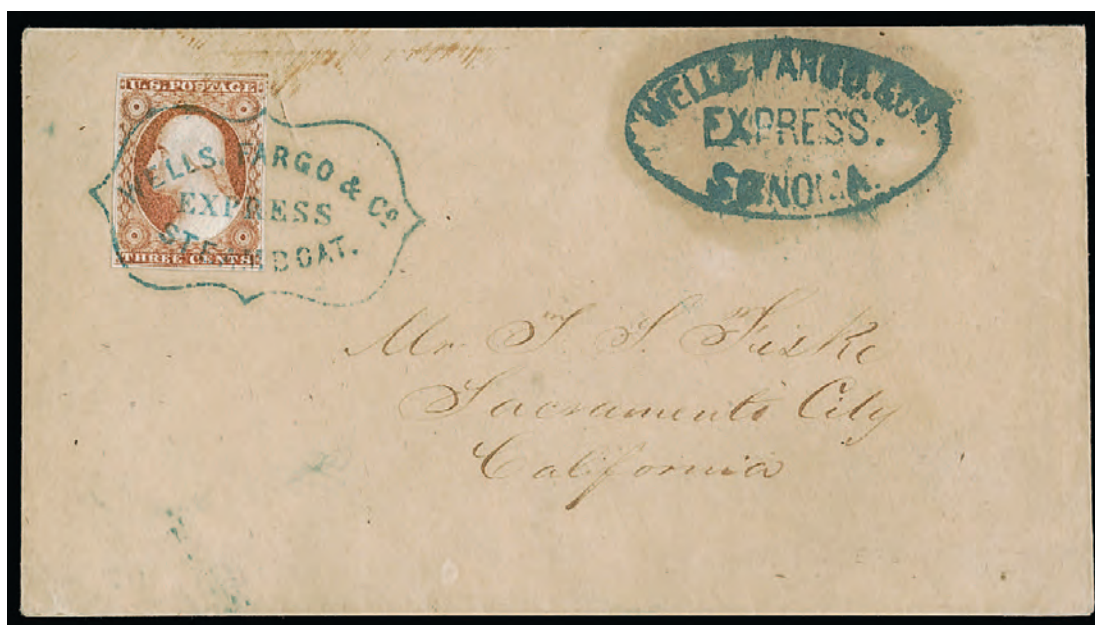 U.S. POSTAGE
THREE CENTS
WELLS. FARGO & Co
EXPRESS
STEAMBOAT.
WELLS, FARGO. & Co.
EXPRESS.
SONOMA.
Mr. T. S. Fiske
Sacramento City
California